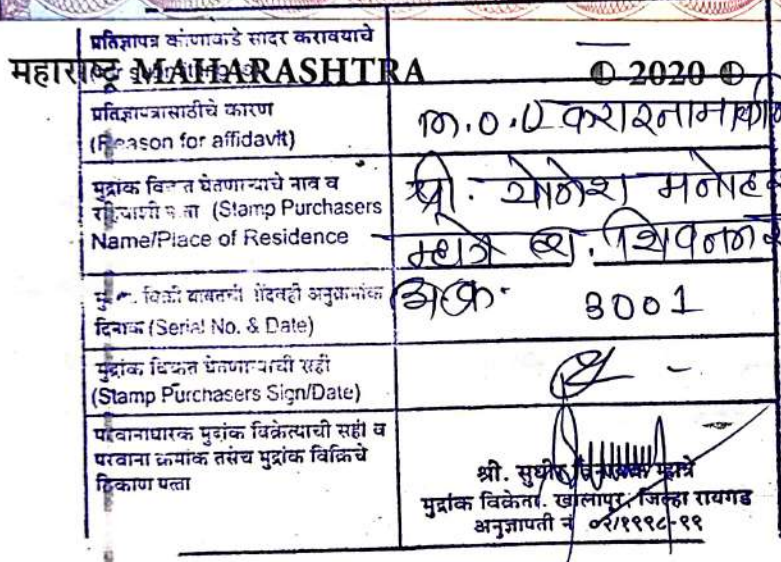 प्रतिज्ञापत्र कोणाकडे सादर करावयाचे
महाराष्ट्र MAHARASHTRA 2020
प्रतिज्ञापत्रासाठीचे कारण
(Reason for affidavit)
m.o.u करारनामा
मुद्रांक विकत घेतणाऱ्याचे नाव व
रहिवाशी पत्ता (Stamp Purchasers
Name/Place of Residence
श्री. योगेश मनोह
म्हात्रे
मुद्रांक विक्री बाबतची नोंदवही अनुक्रमांक
दिनांक (Serial No. & Date)
3001
मुद्रांक विकत घेतणाऱ्याची सही
(Stamp Purchasers Sign/Date)
परवानाधारक मुद्रांक विक्रेत्याची सही व
परवाना क्रमांक तसेच मुद्रांक विक्रिचे
ठिकाण पत्ता
श्री. सुधीर विनायक म्हात्रे
मुद्रांक विक्रेता. खालापूर, जिल्हा रायगड
अनुज्ञापती नं ०२/१९९८-९९